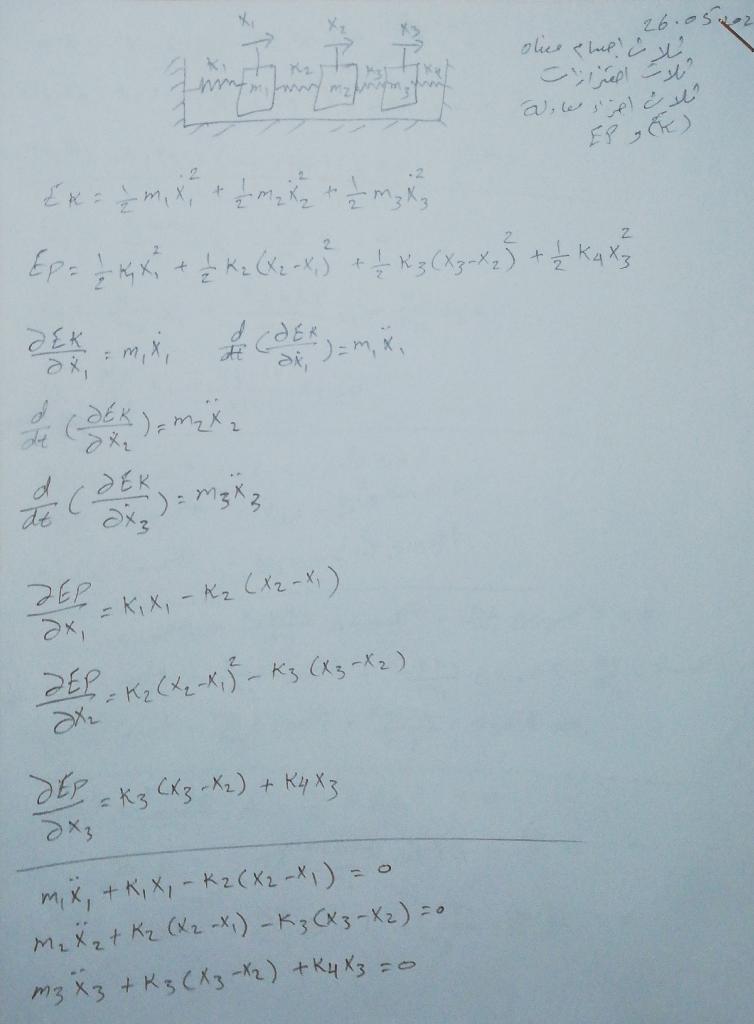 26.05.202
ثلاث اجسام معناه
ثلاث اهتزازات
ثلاث اجزاء معادلة
(K) و EP
X₁ X₂ X₃
K₁ m₁ K₂ m₂ K₃ m₃ K₄
EK = ½ m₁ẋ₁² + ½ m₂ẋ₂² + ½ m₃ẋ₃²
EP = ½ K₁X₁² + ½ K₂(X₂-X₁)² + ½ K₃(X₃-X₂)² + ½ K₄X₃²
∂EK/∂ẋ₁ = m₁ẋ₁ d/dt (∂EK/∂ẋ₁) = m₁ẍ₁
d/dt (∂EK/∂ẋ₂) = m₂ẍ₂
d/dt (∂EK/∂ẋ₃) = m₃ẍ₃
∂EP/∂x₁ = K₁X₁ - K₂(X₂-X₁)
∂EP/∂X₂ = K₂(X₂-X₁)² - K₃(X₃-X₂)
∂EP/∂X₃ = K₃(X₃-X₂) + K₄X₃
m₁ẍ₁ + K₁X₁ - K₂(X₂-X₁) = 0
m₂ẍ₂ + K₂(X₂-X₁) - K₃(X₃-X₂) = 0
m₃ẍ₃ + K₃(X₃-X₂) + K₄X₃ = 0